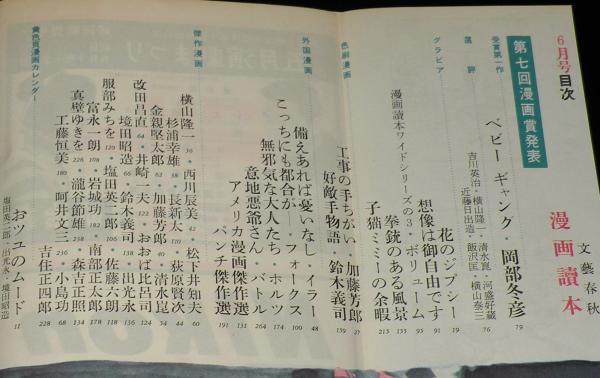 文藝春秋
漫画讀本
6月号目次
第七回漫画賞発表
受賞第一作
ベビーギャング・岡部冬彦 79
選評
吉川英治・横山隆一・清水崑・河盛好蔵
近藤日出造・飯沢匡・横山泰三 76
グラビア
花のジプシー 19
想像は御自由です 91
漫画讀本ワイドシリーズの3・ボリューム 95
拳銃のある風景 155
子猫ミミーの余暇 215
色刷漫画
工事の手ちがい・加藤芳郎 27
好敵手物語・鈴木義司 159
外国漫画
備えあれば憂いなし・イラー 48
こっちにも都合が―・フォークス 100
無邪気な大人たち・ホルツ 174
意地悪爺さん・バトル 264
アメリカ漫画傑作選 131
パンチ傑作選 191
傑作漫画
横山隆一 36・西川辰美 42・松下井知夫 60
杉浦幸雄 58・長新太 110・荻原賢次 44
金親堅太郎 62・加藤芳郎 40・清水崑 54
改田昌直 64・井崎一夫 122・おおば比呂司 124
境田昭造 66・鈴木義司 116・出光永 136
服部みちを 120・塩田英二郎 106・佐藤六朗 118
富永一朗 108・岩城功 182・南部正太郎 178
真壁ゆきを 226・瀧谷節雄 238・森吉正照 134
工藤恒美 180・阿井文三 236・小島功 68
吉住正四郎 228
黄色頁漫画カレンダー
おツユのムード 11
塩田英二郎・出光永・境田昭造